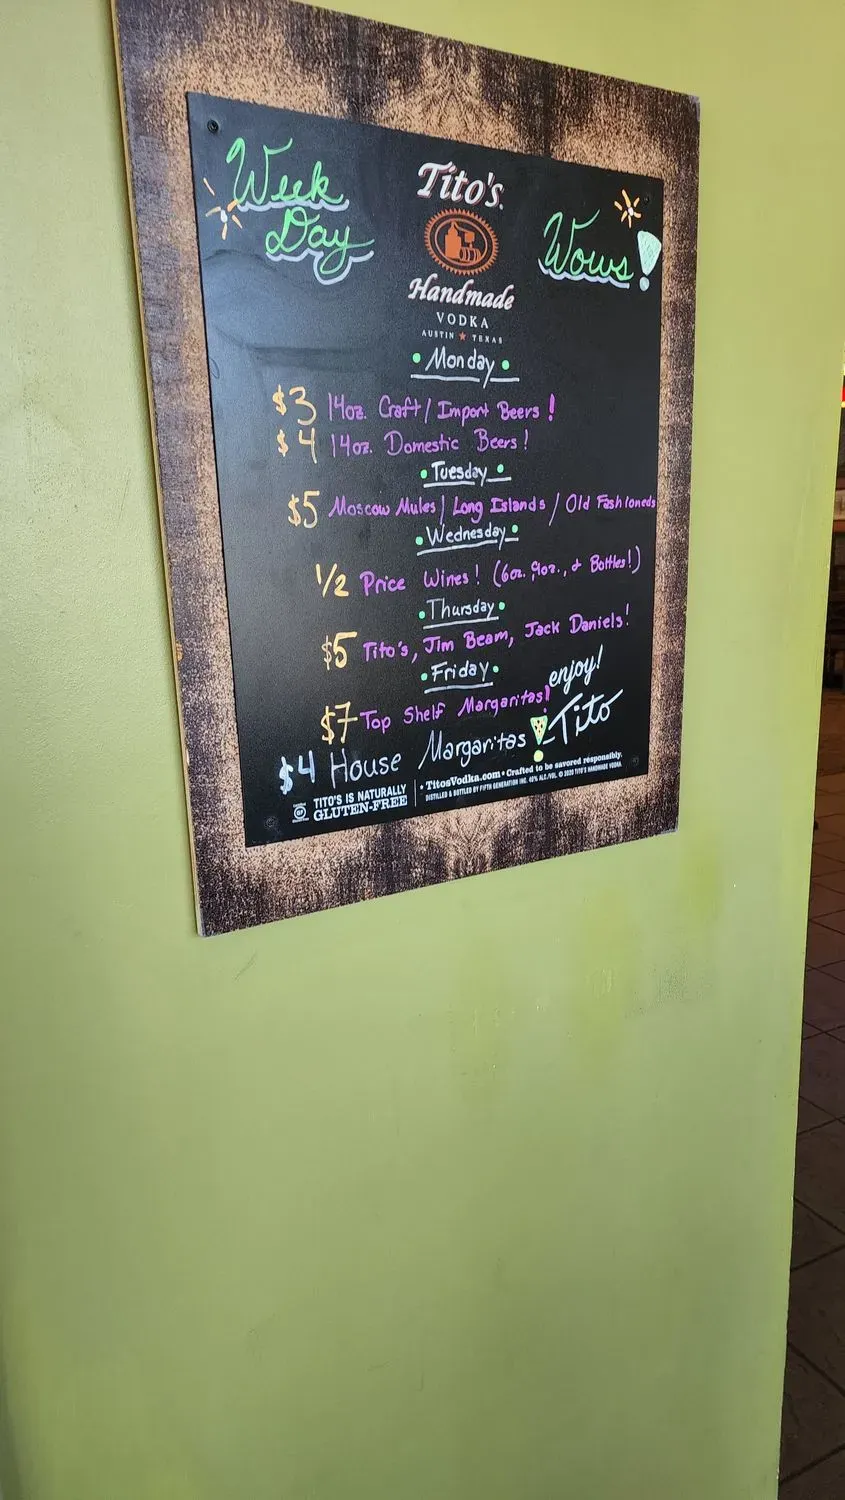 Week
Day
Wows!
Tito's
Handmade
VODKA
AUSTIN ★ TEXAS
• Monday •
$3 14oz. Craft / Import Beers!
$4 14oz. Domestic Beers!
• Tuesday •
$5 Moscow Mules / Long Islands / Old Fashioneds
• Wednesday •
1/2 Price Wines! (6oz., 9oz., & Bottles!)
• Thursday •
$5 Tito's, Jim Beam, Jack Daniels!
• Friday •
$7 Top Shelf Margaritas!
enjoy!
-Tito
$4 House Margaritas!
TITO'S IS NATURALLY
GLUTEN-FREE
• TitosVodka.com • Crafted to be savored responsibly.
DISTILLED & BOTTLED BY FIFTH GENERATION INC. 40% ALC./VOL. © 2020 TITO'S HANDMADE VODKA.